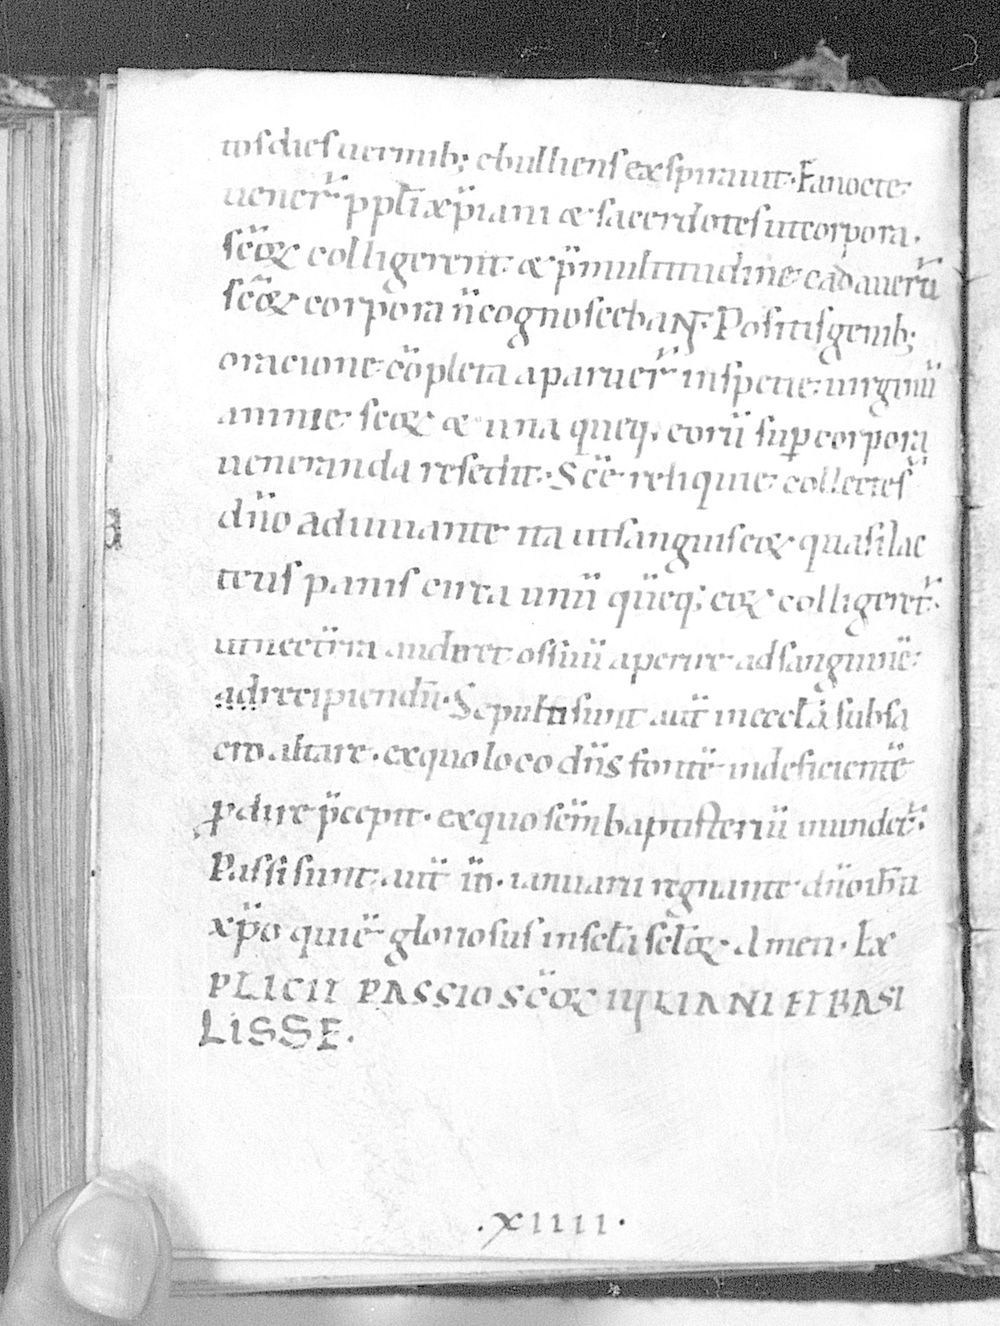 tos dies uermib; ebulliens exspirauit. Ea nocte
uener̄ ppl̄i xp̄iani & sacerdotes ut corpora
sc̄oꝝ colligerent & p̄ multitudine cadauerū
sc̄oꝝ corpora n̄ cognoscebant. Positis genib;
oracione cōpleta aparuer̄ in specie uirginū
anime scoꝝ & una queq; eorū sup̱ corpora
ueneranda resedit. Sc̄e reliquie collectes̄
dn̄o adiuuante ita ut sanguis scoꝝ quasi lac
teus panis circa unū qūeq; eoꝝ colligeret̄.
ut nec tr̄ra auderet os suū aperire ad sanguinē
ad recipiendū. Sepulti sunt aūt in eccl̄a sub sa
cro altare. ex quo loco dn̄s fontē indeficientē
ꝓdire p̄cepit. ex quo sēm baptisteriū inundet̄.
Passi sunt aūt iii. ianuarii regnante dn̄o ih̄u
xp̄o qui ē gloriosus in scl̄a scl̄oꝝ. Amen. Ex
PLICIT PASSIO SC̄OꝜ IULIANI ET BASI
LISSE.
.xiiii.